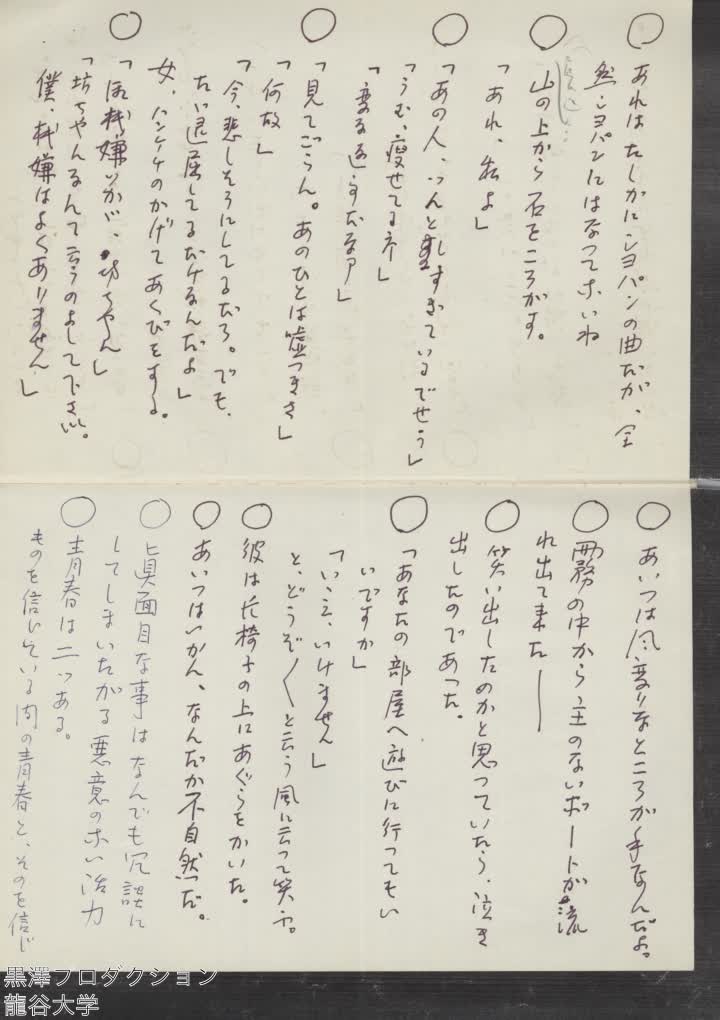 ○ あれはたしかにショパンの曲だが、全
然ショパンにはなつてないね
○ 山の上から石をころがす。
「あれ、私よ」
○ 「あの人、つんと
すぎているでせう」
「うむ、瘦せてるネ」
「変な返すだなア」
○ 「見てごらん。あのひとは嘘つきさ」
「何故」
「今、悲しそうにしてるだろ。でも、
たい退屈してるだけなんだよ」
女、ハンケチのかげであくびをする。
○ 「御機嫌いかが、坊ちやん」
「坊ちやんなんて云うのよして下さい。
僕、機嫌はよくありません」
○ あいつは風変りなところが手なんだよ。
○ 霧の中から主のないボートが流
れ出て来た――
○ 笑い出したのかと思つていたら、泣き
出したのであつた。
○ 「あなたの部屋へ遊びに行つてもい
いですか」
「いいえ、いけません」
と、どうぞ〱と云う風に云つて笑ふ。
○ 彼は長椅子の上にあぐらをかいた。
○ あいつはいかん、なんだか不自然だ。
○ 真面目な事はなんでも冗談に
してしまいたがる悪意のない活力
○ 青春は二つある。
ものを信じている間の青春と、そのを信じ
黒澤プロダクション
龍谷大学